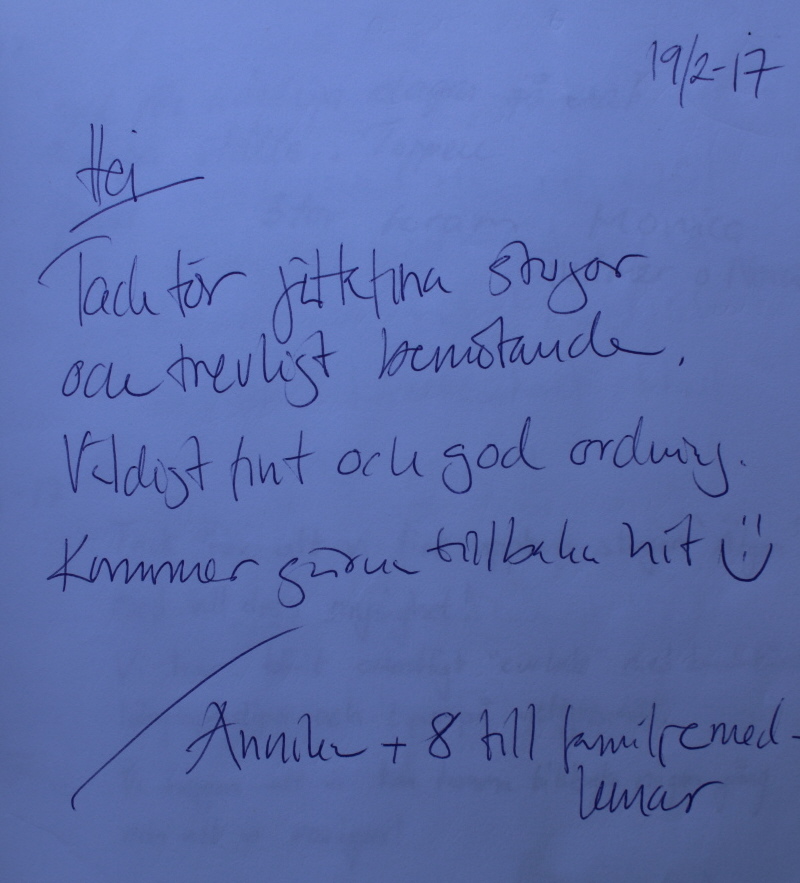 19/2-17
Hej
Tack för jättefina stugor
och trevligt bemötande.
Väldigt fint och god ordning.
Kommer gärna tillbaka hit :)
/ Annika + 8 till familjemed-
lemmar